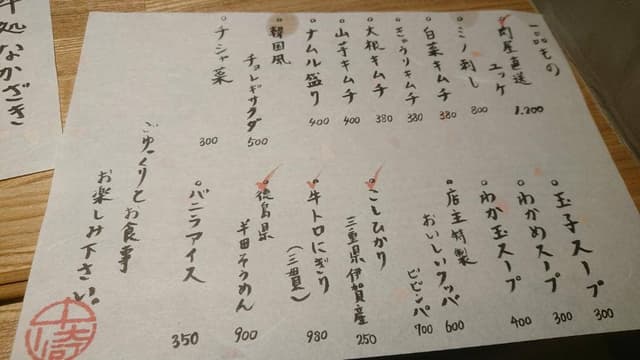 一品もの
肉屋直送
ユッケ 1.200
ミノ刺し 800
白菜キムチ 380
きゅうりキムチ 380
大根キムチ 380
山芋キムチ 400
ナムル盛り 400
韓国風
チョレギサラダ 500
チシャ菜 300
玉子スープ 300
わかめスープ 300
わか玉スープ 400
店主特製
おいしいクッパ 600
ビビンバ 700
こしひかり
三重県伊賀産 250
牛トロにぎり
(三貫) 980
徳島県
半田そうめん 900
バニラアイス 350
ごゆっくりとお食事
お楽しみ下さい。
処なかざき